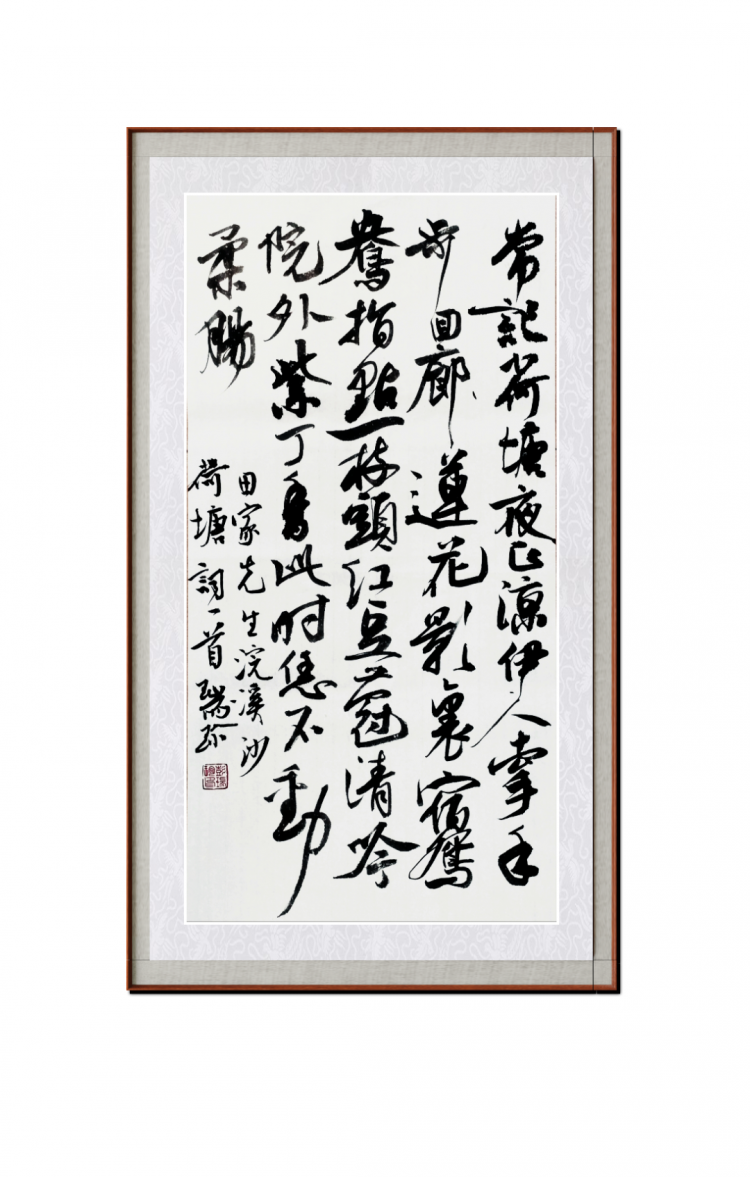 常記荷塘夜正凉伊人牽手
步回廊蓮花影裏宿鴛
鴦指點枝頭红豆蔻清吟
院外紫丁香此时恁不動
柔腸
田家先生浣溪沙
荷塘詞一首瑞